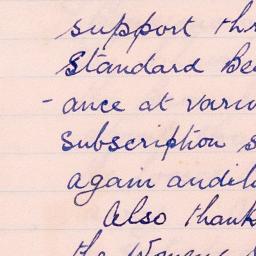 support thr
Standard Be
- ance at vario
Subscription s
again and
Also thank
the Womens